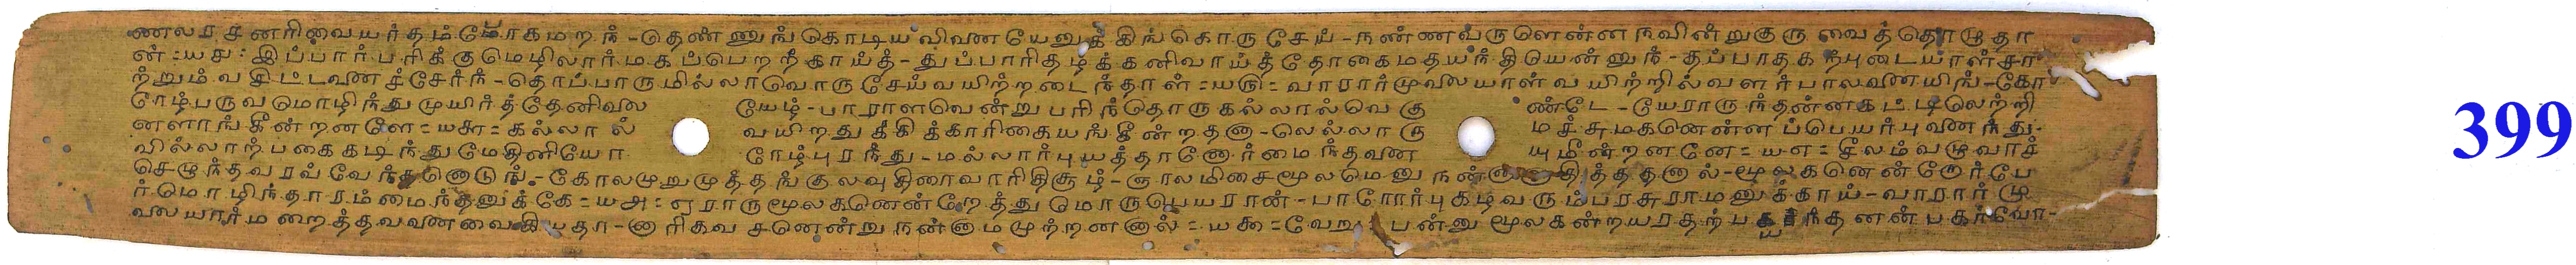 ணலரசனரிவையர்தம்மோகமறந-டுதண்ணுங்கொடியவிவணயேனுக்கிங்கொருசேய்-நண்ணவருளென்னநவின்றுகுருவைத்தொழுதா
ன்=யச=இப்பார்பரிக்குமெழிலார்மகப்பெறநீகாய்த்-துப்பாரிதழ்க்கனிவாய்த்தோகைமதயந்திடுயன்னுந்-தப்பாதகற்புடையாள்சா
ற்றும்வ இட்டவண ச்சேர்ந்-தொப்பாருமில்லாவொருசேய்வயிற்றடைந்தாள்=யரு=வாரார்முலையாள்வயிற்றில்வளர்பாலவணயிங்-கோ
ரேழ்பருவமொழிந்துமுயிர்த்தேனிவலை யேழ்-பாராளவென்றுபரிந்தொருகல்லால்வெகு ண்டே-யேராருந்தன்னகட்டிலெற்றி
னளாங்கீன்றனளே=யசு=கல்லால் வயிறதுக்கிக்காரிகையங்கீன்றதனா-லெல்லாரு மச்சுமகனென்னப்பெயர்புவணந்து-
வில்லாற்பகைகடிந்துமேதினியோ ரேழ்புரந்து-மல்லார்புயத்தானோர்மைந்தவண யுமீன்றனனே=யஎ=சீலம்வழுவாச்
செழுந்தவரவ்வேந்தனொடுங்-கோலமுறுமுத்தங்குலவுதிரைவாரிதிசூழ்-ஞாலமிசைமூலமெனு நன்னாளுதித்ததனால்-மூலகனென்றேர்பே
ர்மொழிந்தாரம்மைந்தனுக்கே=யஅ=ஏராருமூலகனென்றேத்துமொருபெயரான்-பாரோர்புகழ்வரும்பரசுராமனுக்காய்-வாரார்மு
வலயார்மறைத்தவவணவைகிபதா-னாரிகவசனென்றுநன்னாமமுற்றனனால்=யகூ=வேறு பன்னுமூலகன்றயரதற்ப ந்தனன்பகர்வோ-
399